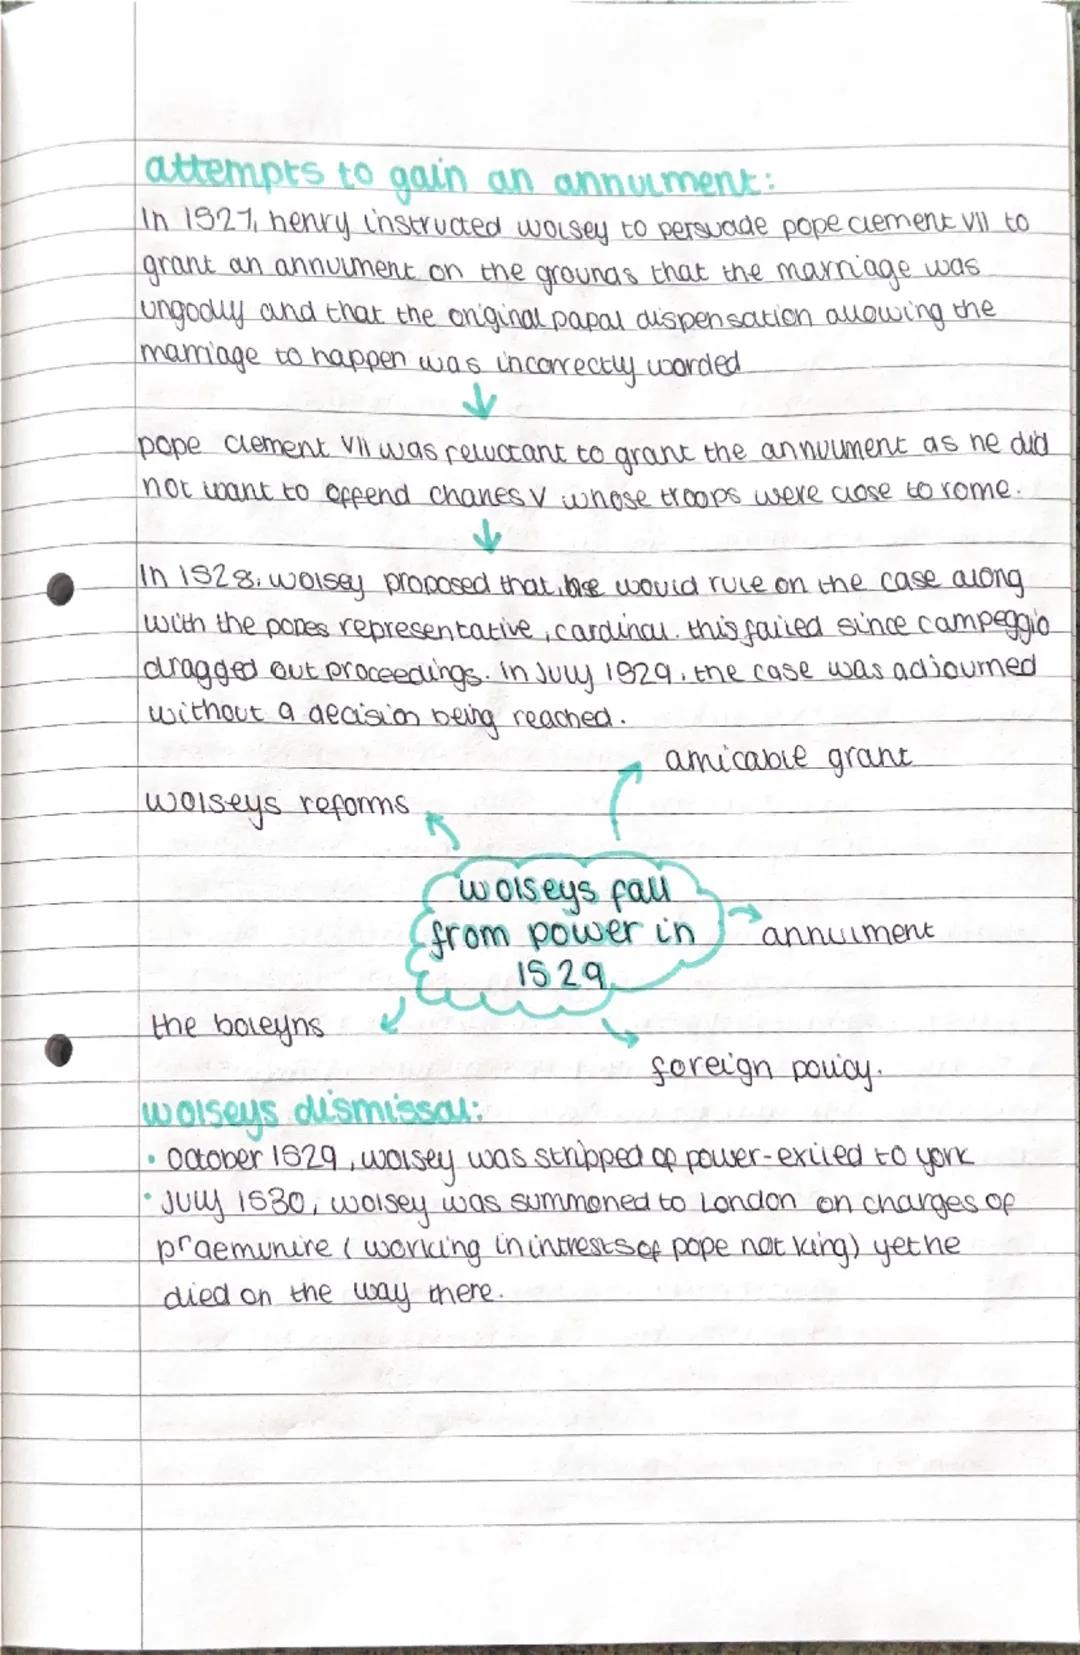 attempts to gain an annulment:
In 1527, henry instructed wolsey to persuade pope clement VII to
grant an annulment on the grounds that the marriage was
ungodly and that the original papal dispensation allowing the
marriage to happen was incorrectly worded
↓
pope clement VII was reluctant to grant the annulment as he did
not want to offend charles V whose troops were close to rome.
↓
In 1528, wolsey proposed that, he would rule on the case along
with the popes representative, cardinal. this failed since campeggio
dragged out proceedings. In July 1529, the case was adjourned
without a decision being reached.
amicable grant
wolseys reforms
wolseys fall
from power in
1529
annulment
the boleyns
foreign policy.
wolseys dismissal:
• October 1529, wolsey was stripped of power-exiled to york
• July 1530, wolsey was summoned to London on charges of
praemunire (working in intrests of pope not king) yet he
died on the way there.